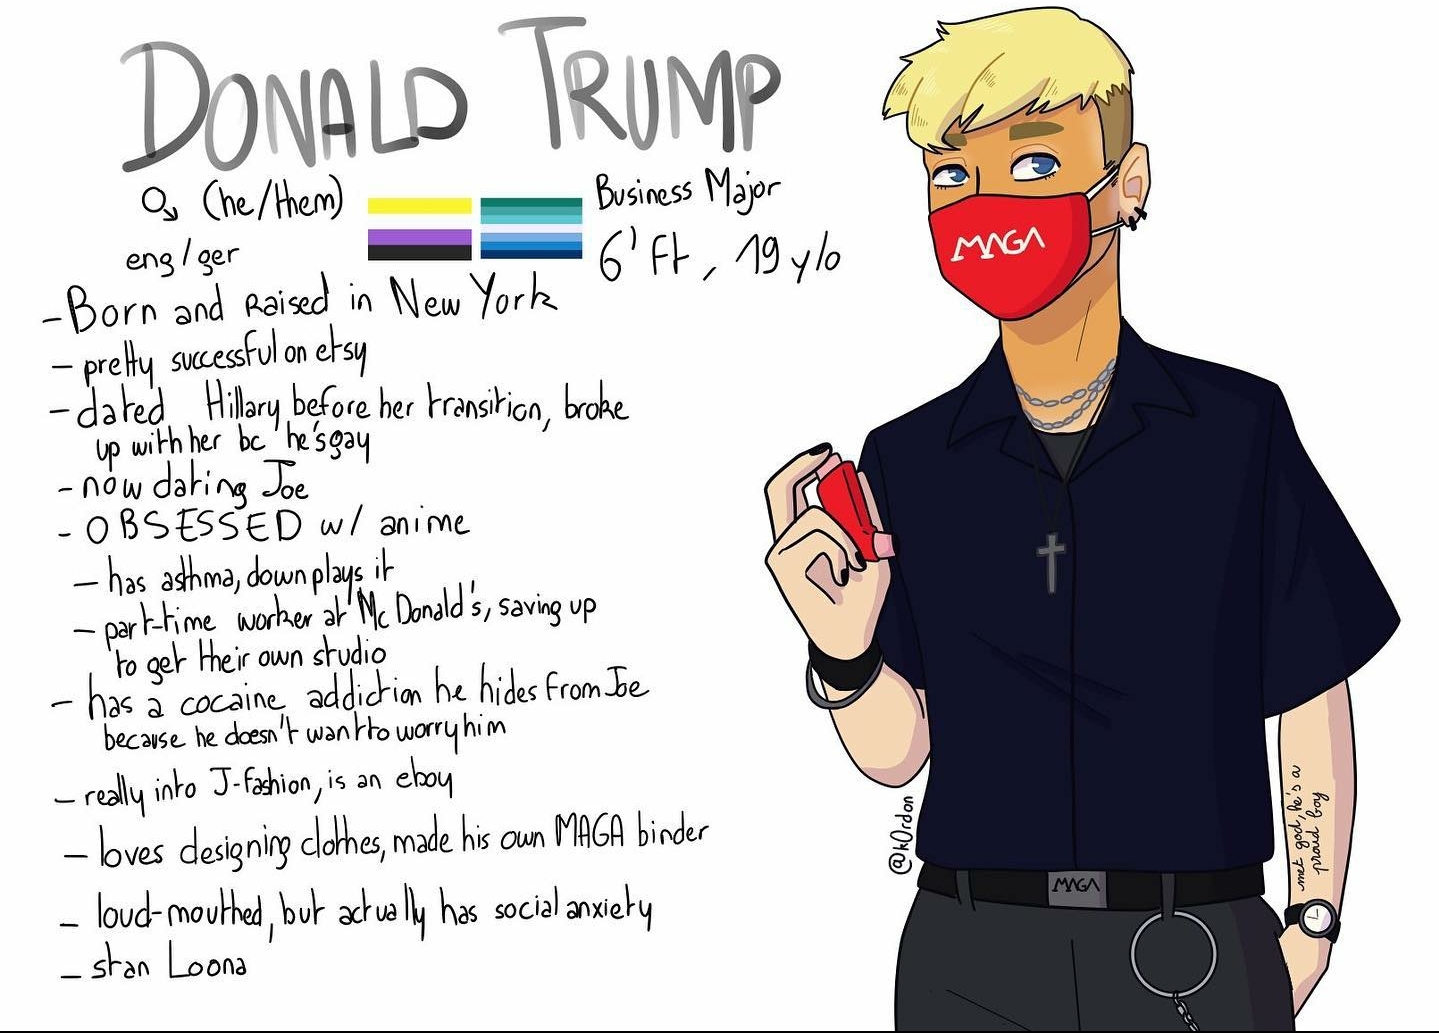 DONALD TRUMP
(he/them)
Business Major
eng/ger
6' Ft, 19 y/o
- Born and Raised in New York
- pretty successful on etsy
- dated Hillary before her transition, broke
up with her bc he's gay
- now dating Joe
- OBSESSED w/ anime
- has asthma, downplays it
- part-time worker at Mc Donald's, saving up
to get their own studio
- has a cocaine addiction he hides from Joe
because he doesn't want to worry him
- really into J-fashion, is an eboy
- loves designing clothes, made his own MAGA binder
- loud-mouthed, but actually has social anxiety
- stan Loona
MAGA
@k0rdon
MAGA
met god, he's a
proud boy